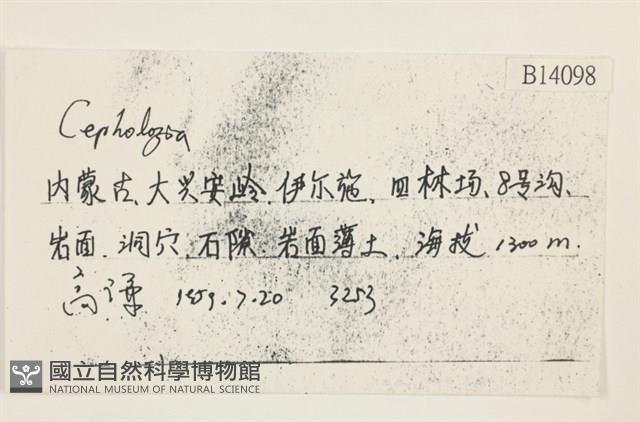 B14098
Cephalozia
内蒙古、大兴安岭、伊尔施、四林场、8号沟、
岩面、洞穴、石隙、岩面薄土、海拔 1300 m.
高谦 1959.7.20 3253
國立自然科學博物館
NATIONAL MUSEUM OF NATURAL SCIENCE